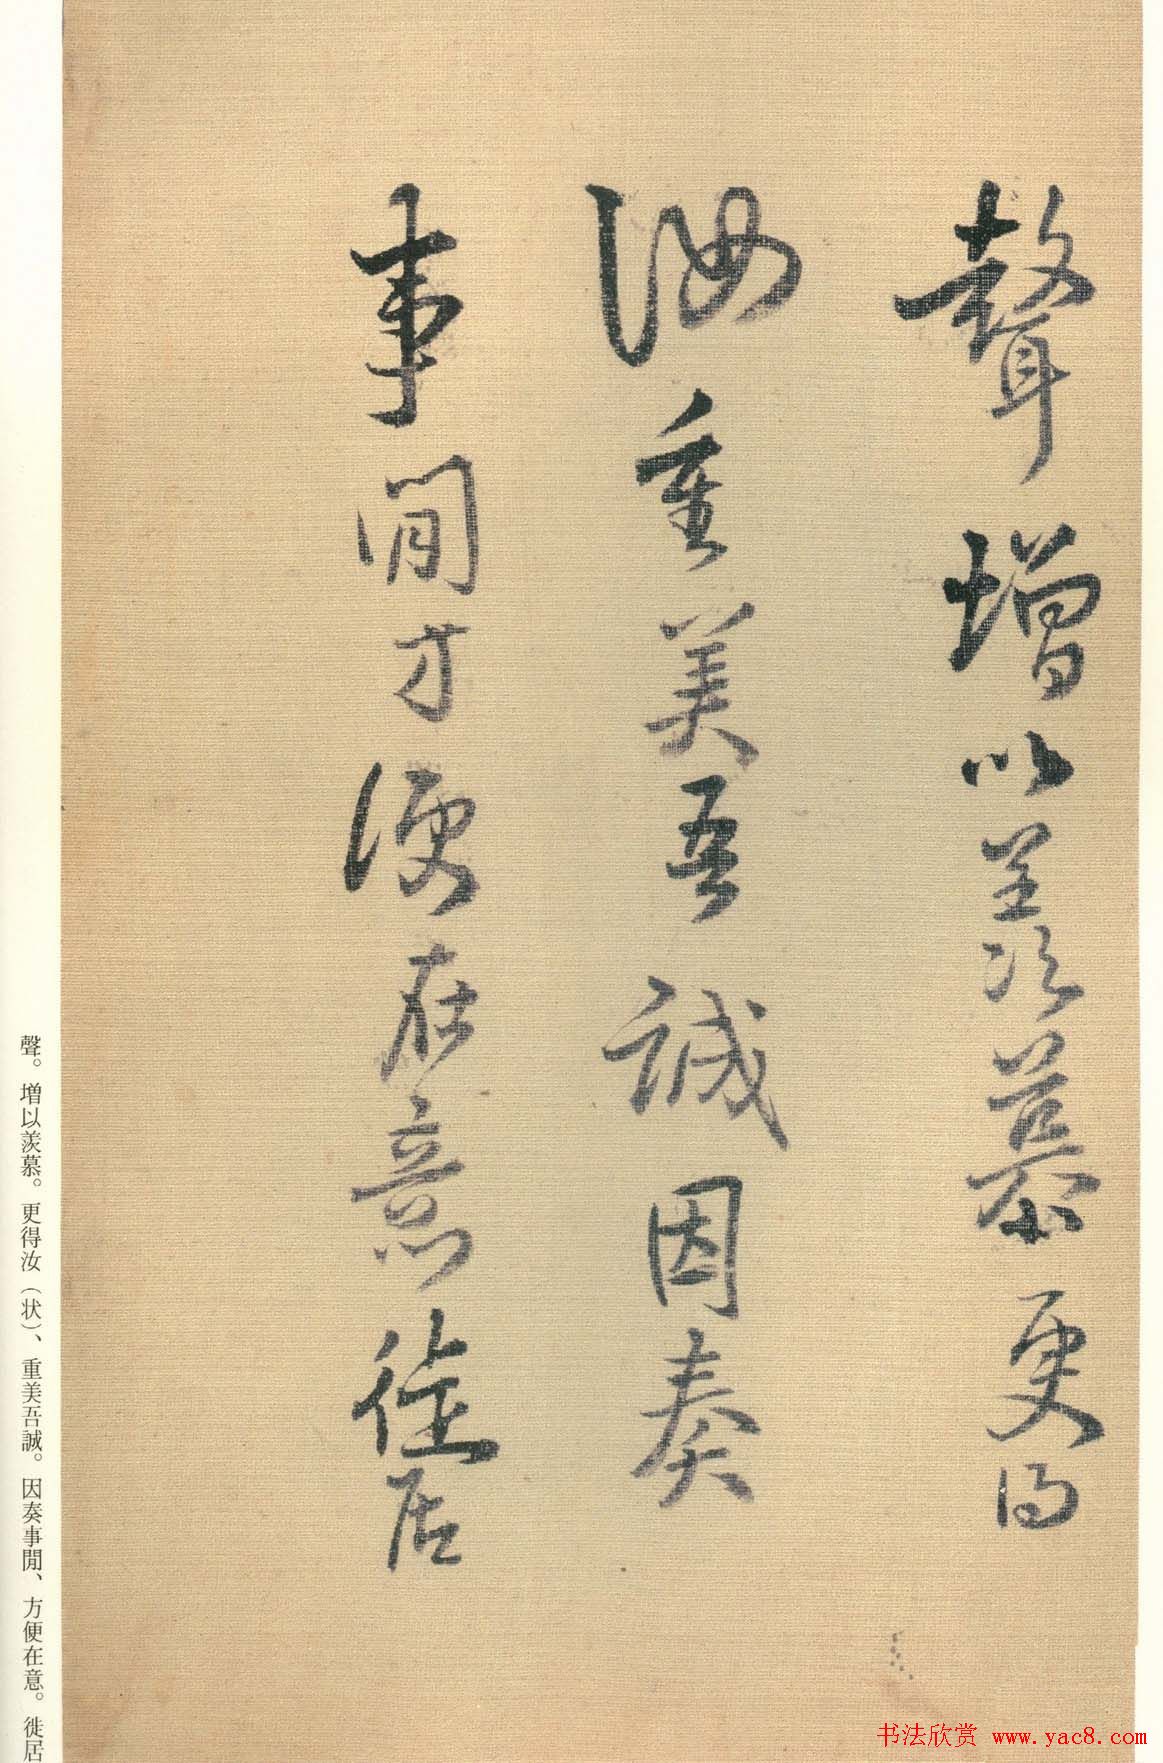 聲增以羨慕更得
汝重美吾誠因奏
事閒方便在意徙居
聲。增以羨慕。更得汝（状）、重美吾誠。因奏事閒、方便在意。徙居
书法欣赏 www.yac8.com